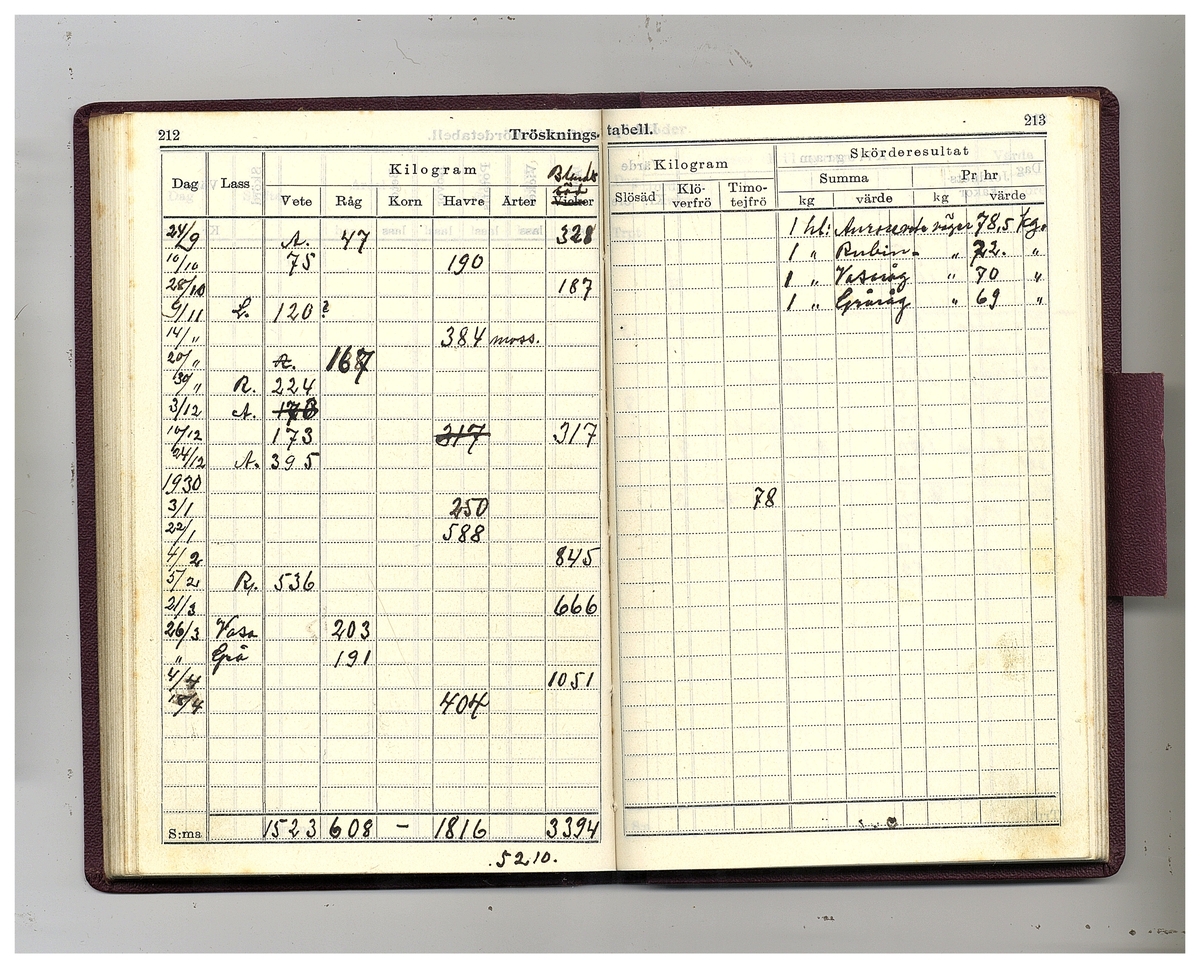 212
Trösknings-
Kilogram
Dag Lass Vete Råg Korn Havre Ärter Vicker
24/9 A. 47 328
10/10 75 190
28/10 187
9/11 L. 120?
14/„ 384 moss.
20/„ A. 167
30/„ R. 224
3/12 A. 178
10/12 173 317 317
24/12 A. 395
1930
3/1 250
22/1 588
4/2 845
5/2 R. 536
21/3 666
26/3 Vasa 203
„ Grå 191
4/4 1051
18/4 404
S:ma 1523 608 – 1816 3394
.5210.
213
tabell.
Kilogram Skörderesultat
Summa Pr hr
Slösäd Klö-verfrö Timo-tejfrö kg värde kg värde
1 hl: väger 78,5 kg.
1 „ Rubin- „ 72. „
1 „ Vasaråg „ 70 „
1 „ Gråråg „ 69 „
78